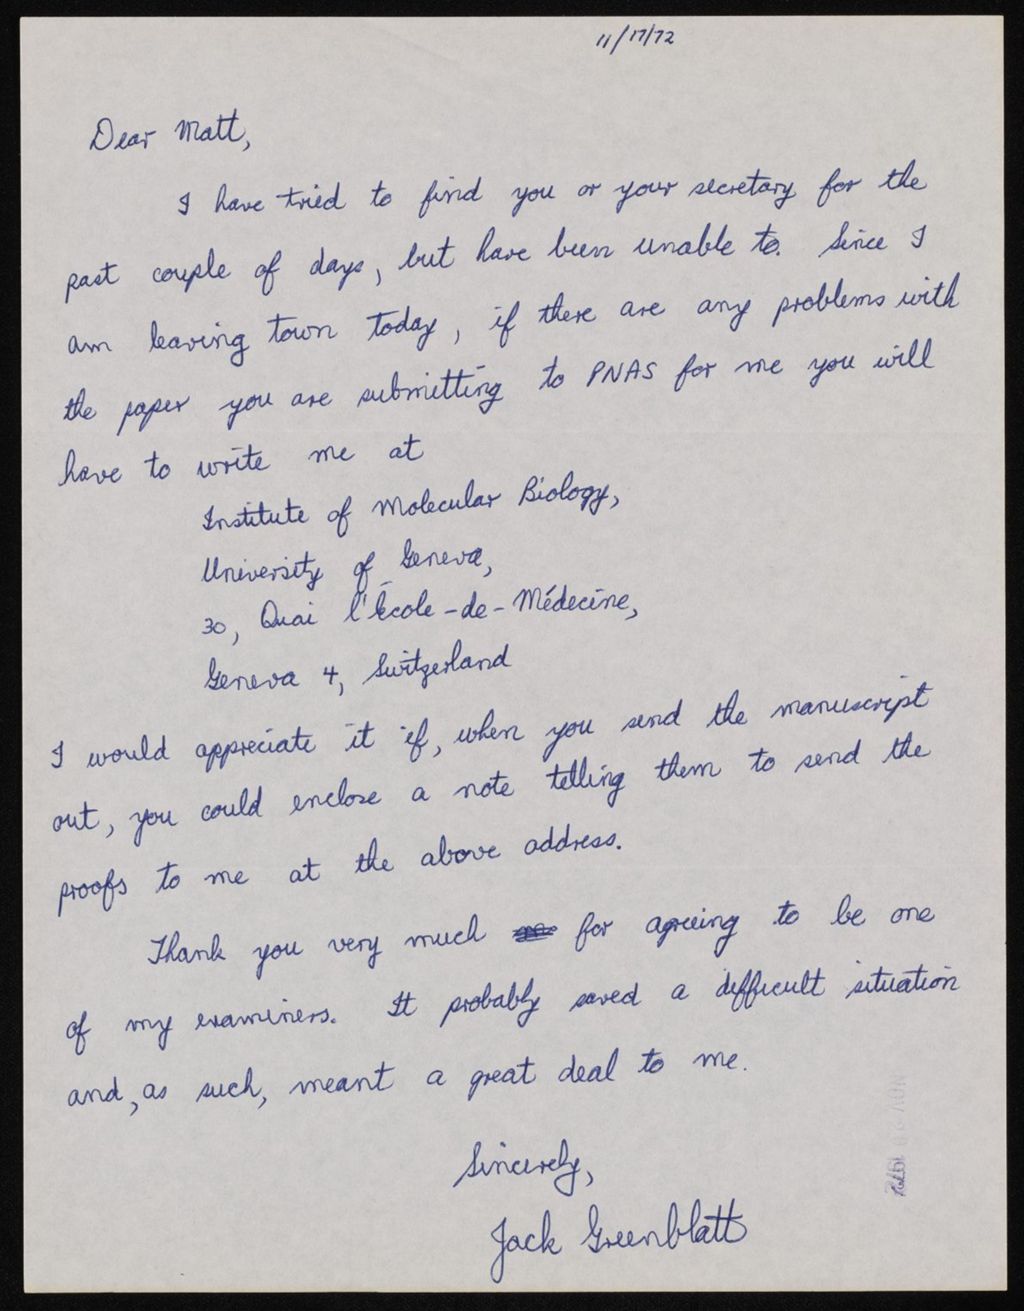 11/17/72
Dear Matt,
I have tried to find you or your secretary for the
past couple of days, but have been unable to. Since I
am leaving town today, if there are any problems with
the paper you are submitting to PNAS for me you will
have to write me at
Institute of Molecular Biology,
University of Geneva,
30, Quai l'École-de-Médecine,
Geneva 4, Switzerland
I would appreciate it if, when you send the manuscript
out, you could enclose a note telling them to send the
proofs to me at the above address.
Thank you very much for agreeing to be one
of my examiners. It probably saved a difficult situation
and, as such, meant a great deal to me.
Sincerely,
Jack Greenblatt
NOV 20 1972